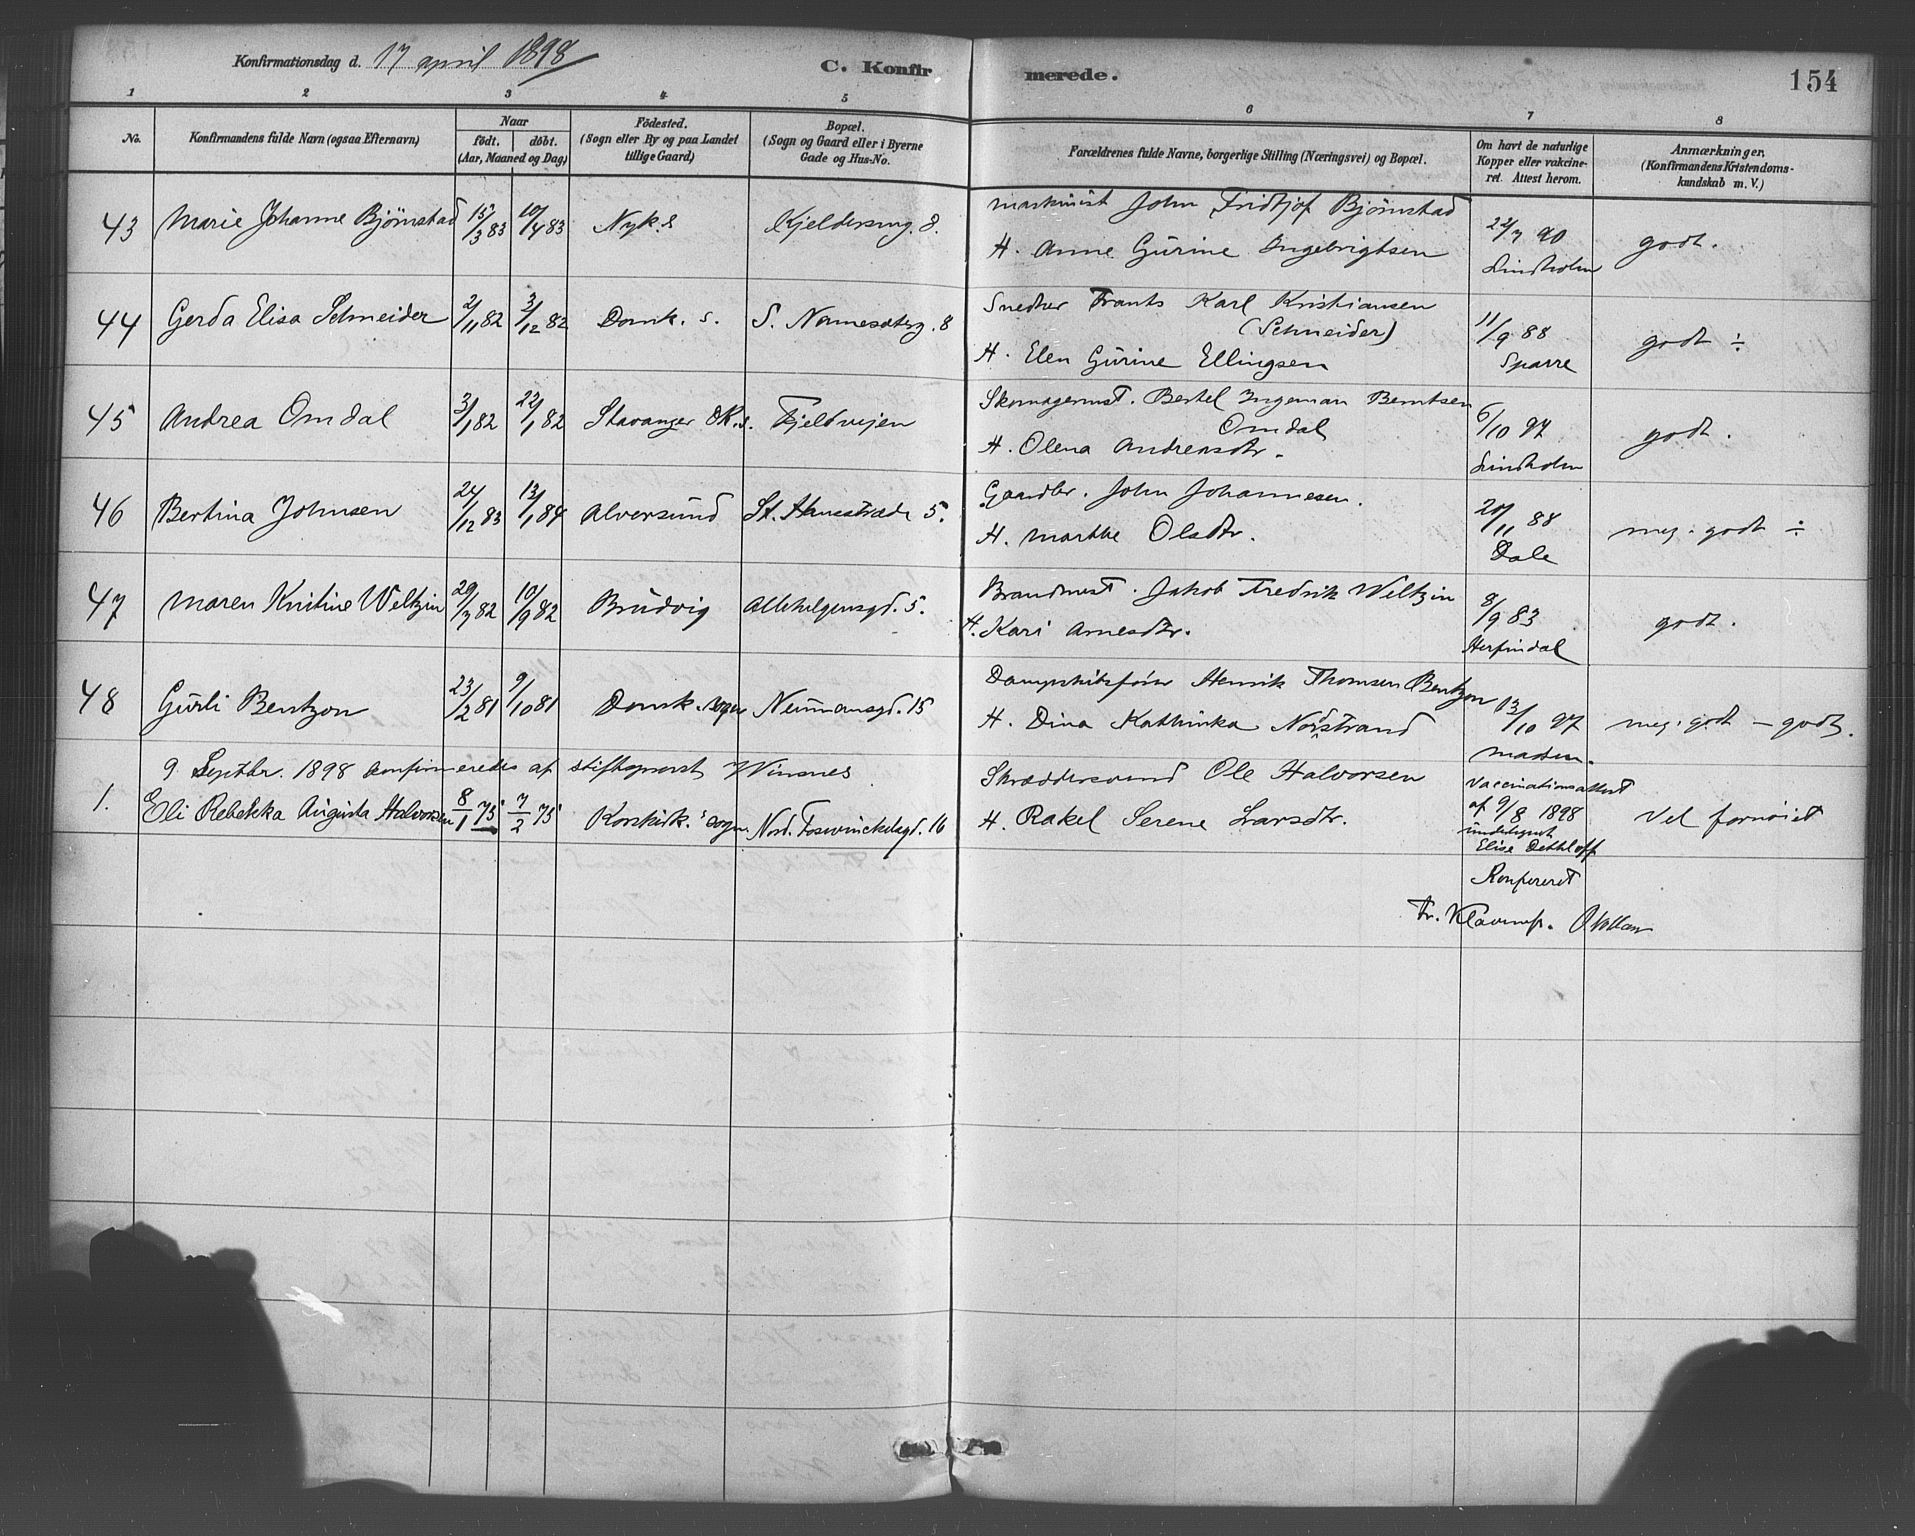 Konfirmationsdag d. 17 april 1898
C. Konfirmerede.
154
1 2 3 4 5 6 7 8
No.
Konfirmandens fulde Navn (ogsaa Efternavn)
Naar
født. døbt.
(Aar, Maaned og Dag)
Fødested.
(Sogn eller By og paa Landet
tillige Gaard)
Bopæl.
(Sogn og Gaard eller i Byerne
Gade og Hus-No.
Forældrenes fulde Navne, borgerlige Stilling (Næringsvei) og Bopæl.
Om havt de naturlige
Kopper eller vakcine-
ret. Attest herom.
Anmærkninger,
(Konfirmandens Kristendoms-
kundskab m. V.)
43 Marie Johanne Bjørnstad 15/3 83 10/4 83 Nyk. s Kjeldersmg. 8. Maskinist John Fridtjof Bjørnstad
H. Anne Gurine Ingebrigtsen 22/7 90 Lindholm godt.
44 Gerda Elisa Schneider 2/11 82 3/12 82 Domk. s. S. 8 Snedker Frants Karl Kristiansen
(Schneider)
H. Elen Gurine Ellingsen 11/9 88 Sparre godt ÷
45 Andrea Omdal 3/1 82 22/1 82 Stavanger DK. s. Fjeldvejen Skomagermst. Bertel Ingeman Berntsen
Omdal
H. Olena Andreasdtr. 6/10 97 Lindholm godt.
46 Bertina Johnsen 24/12 83 13/1 84 Alversund St. Hansstræde 5. Gaardbr. John Johannesen.
H. Marthe Olsdtr. 20/11 88 Dale meg. godt ÷
47 Maren Kristine Weltzin 29/7 82 10/9 82 Brudvig Allehelgensgd. 5. Brandmst. Jakob Fredrik Weltzin
H. Kari Arnesdtr. 8/9 83 Herfindal godt.
48 Gurli Bentzon 23/2 81 9/10 81 Domk. sogn Neumansgd. 15 Dampskibsfører Henrik Thomsen Bentzon
H. Dina Kathinka Nordstrand 13/10 97 Madsen. meg. godt - godt.
9 Septbr. 1898 konfirmeredes af stiftsprovst Winsnes
1. Eli Rebekka Augusta Halvorsen 8/1 75 7/2 75 Korskirk. sogn. Nord. Foswinckelsgd. 16 Skræddersvend Ole Halvorsen
H. Rakel Serene Larsdtr. Vaccinationsattest
af 9/8 1898
undertegnet
Elise Dethloff Vel fornøiet
Konfereret
Fr. Klaveness.